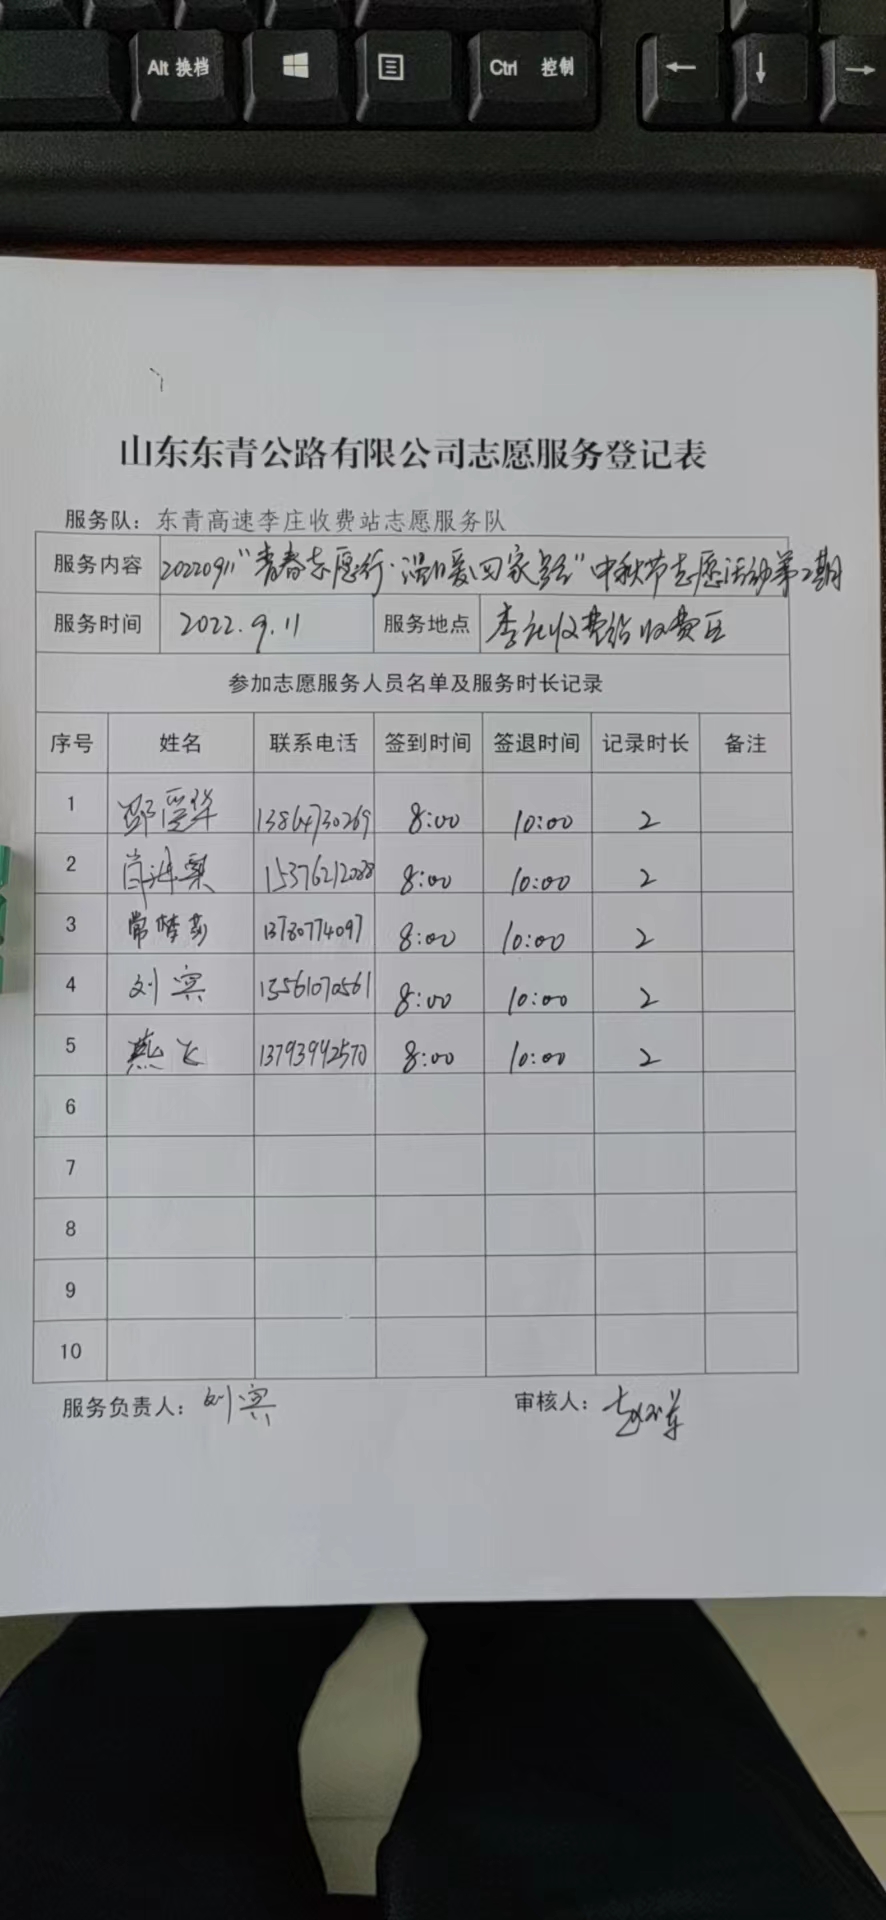 Alt 换档
Ctrl 控制
山东东青公路有限公司志愿服务登记表
服务队：东青高速李庄收费站志愿服务队
服务内容 20220911"青春志愿行·温暖回家路"中秋节志愿活动第2期
服务时间 2022.9.11 服务地点 李庄收费站收费区
参加志愿服务人员名单及服务时长记录
序号 姓名 联系电话 签到时间 签退时间 记录时长 备注
1 13864730269 8:00 10:00 2
2 15376212088 8:00 10:00 2
3 常梦莎 13780774097 8:00 10:00 2
4 刘宾 13561070561 8:00 10:00 2
5 燕飞 13793942570 8:00 10:00 2
6
7
8
9
10
服务负责人：刘宾 审核人：